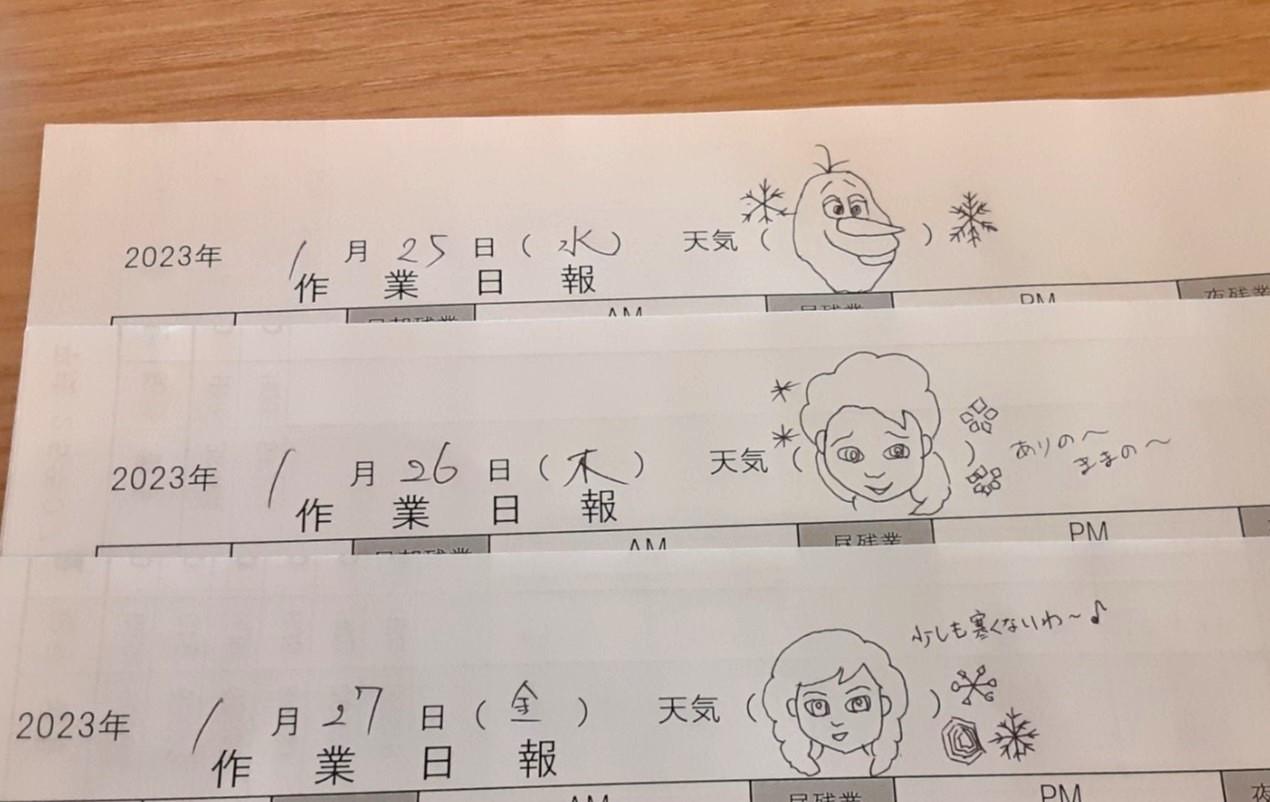 2023年 1月25日(水) 天気( )
作業日報
AM PM
2023年 1月26日(木) 天気( ) ありの〜
ままの〜
作業日報
AM 昼残業 PM
2023年 1月27日(金) 天気( ) 少しも寒くないわ〜♪
作業日報
AM 昼残業 PM